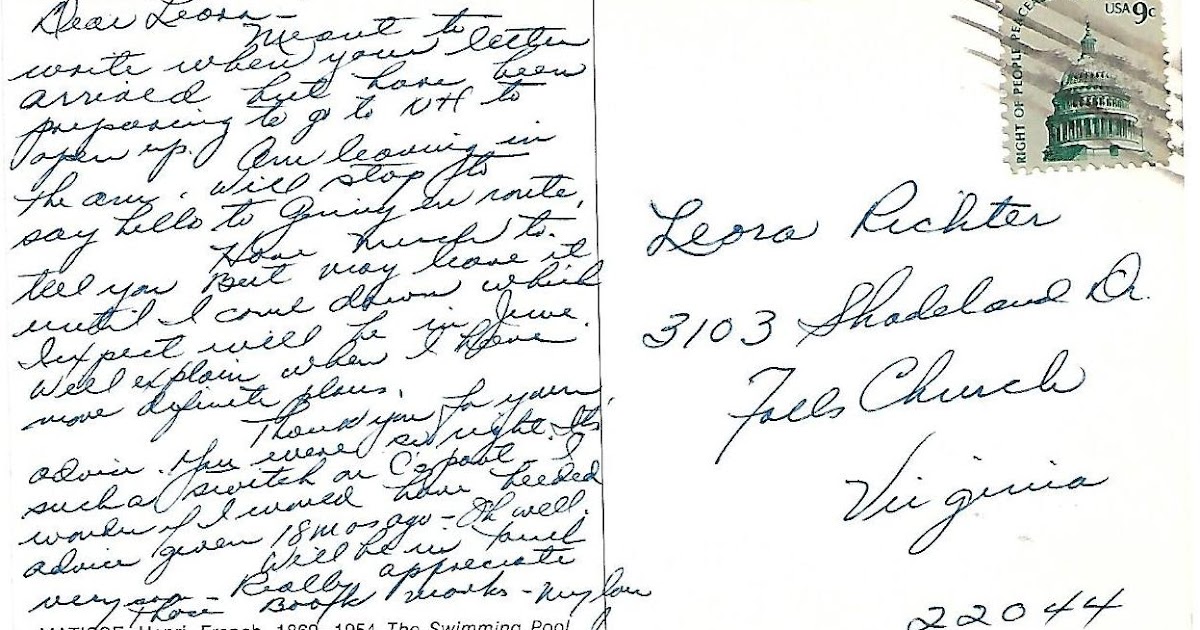 Dear Leora -
Meant to
write when your letter
arrived but have been
preparing to go to NH to
open up. Am leaving in
the am. Will stop to
say hello to Ginny en route.
Have much to
tell you But may leave it
until I come down which
I expect will be in June.
Will explain when I have
more definite plans.
Thank you for your
advice. You were so right. It's
such a switch on C's part. I
wonder if I would have heeded
advice given 18 mos ago - Oh well.
Will be in touch
very soon - Really appreciate
those Book marks - My love
MATISSE, Henri, French, 1869-1954 The Swimming Pool
USA 9c
RIGHT OF PEOPLE PEACEA
Leora Richter
3103 Shadeland Dr.
Falls Church
Virginia
22044